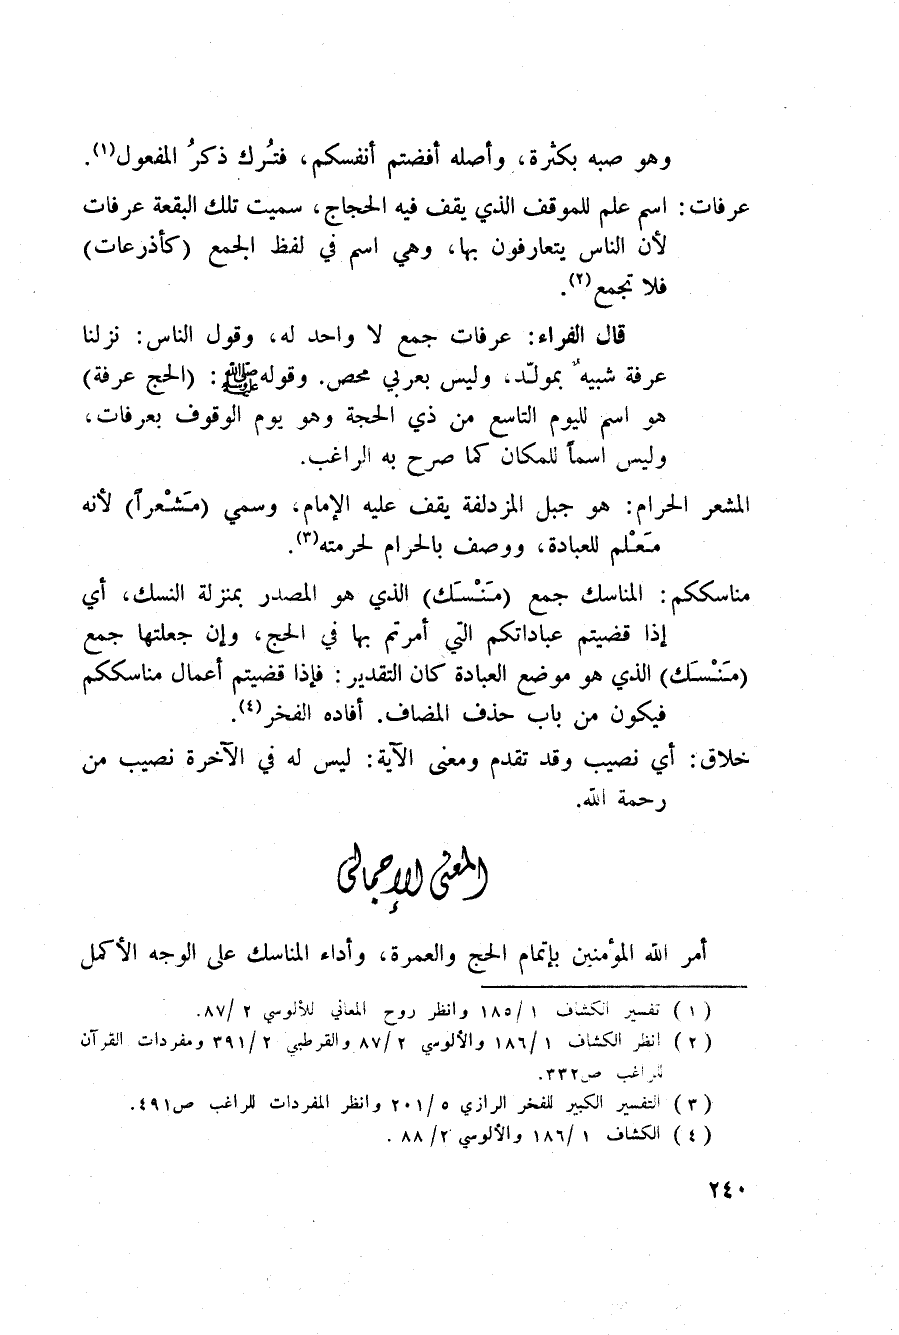 وهو صبه بكثرة، وأصله أفضتم أنفسكم، فتُرك ذكرُ المفعول(١).
عرفات: اسم علم للموقف الذي يقف فيه الحجاج، سميت تلك البقعة عرفات
لأن الناس يتعارفون بها، وهي اسم في لفظ الجمع (كأذرعات)
فلا تجمع(٢).
قال الفراء: عرفات جمع لا واحد له، وقول الناس: نزلنا
عرفة شبيهٌ بمولّد، وليس بعربي محض. وقوله ﷺ: (الحج عرفة)
هو اسم لليوم التاسع من ذي الحجة وهو يوم الوقوف بعرفات،
وليس اسماً للمكان كما صرح به الراغب.
المشعر الحرام: هو جبل المزدلفة يقف عليه الإمام، وسمي (مَشْعراً) لأنه
مَعْلم للعبادة، ووصف بالحرام لحرمته(٣).
مناسككم: المناسك جمع (مَنْسَك) الذي هو المصدر بمنزلة النسك، أي
إذا قضيتم عباداتكم التي أمرتم بها في الحج، وإن جعلتها جمع
(مَنْسَك) الذي هو موضع العبادة كان التقدير: فإذا قضيتم أعمال مناسككم
فيكون من باب حذف المضاف. أفاده الفخر(٤).
خلاق: أي نصيب وقد تقدم ومعنى الآية: ليس له في الآخرة نصيب من
رحمة الله.
المعنى الإجمالي
أمر الله المؤمنين بإتمام الحج والعمرة، وأداء المناسك على الوجه الأكمل
(١) تفسير الكشاف ١/ ١٨٥ وانظر روح المعاني للألوسي ٢/ ٨٧.
(٢) انظر الكشاف ١/ ١٨٦ والألوسي ٢/ ٨٧ والقرطبي ٢/ ٣٩١ ومفردات القرآن
للراغب ص٣٣٢.
(٣) التفسير الكبير للفخر الرازي ٥/ ٢٠١ وانظر المفردات للراغب ص٤٩١.
(٤) الكشاف ١/ ١٨٦ والألوسي ٢/ ٨٨.
٢٤٠